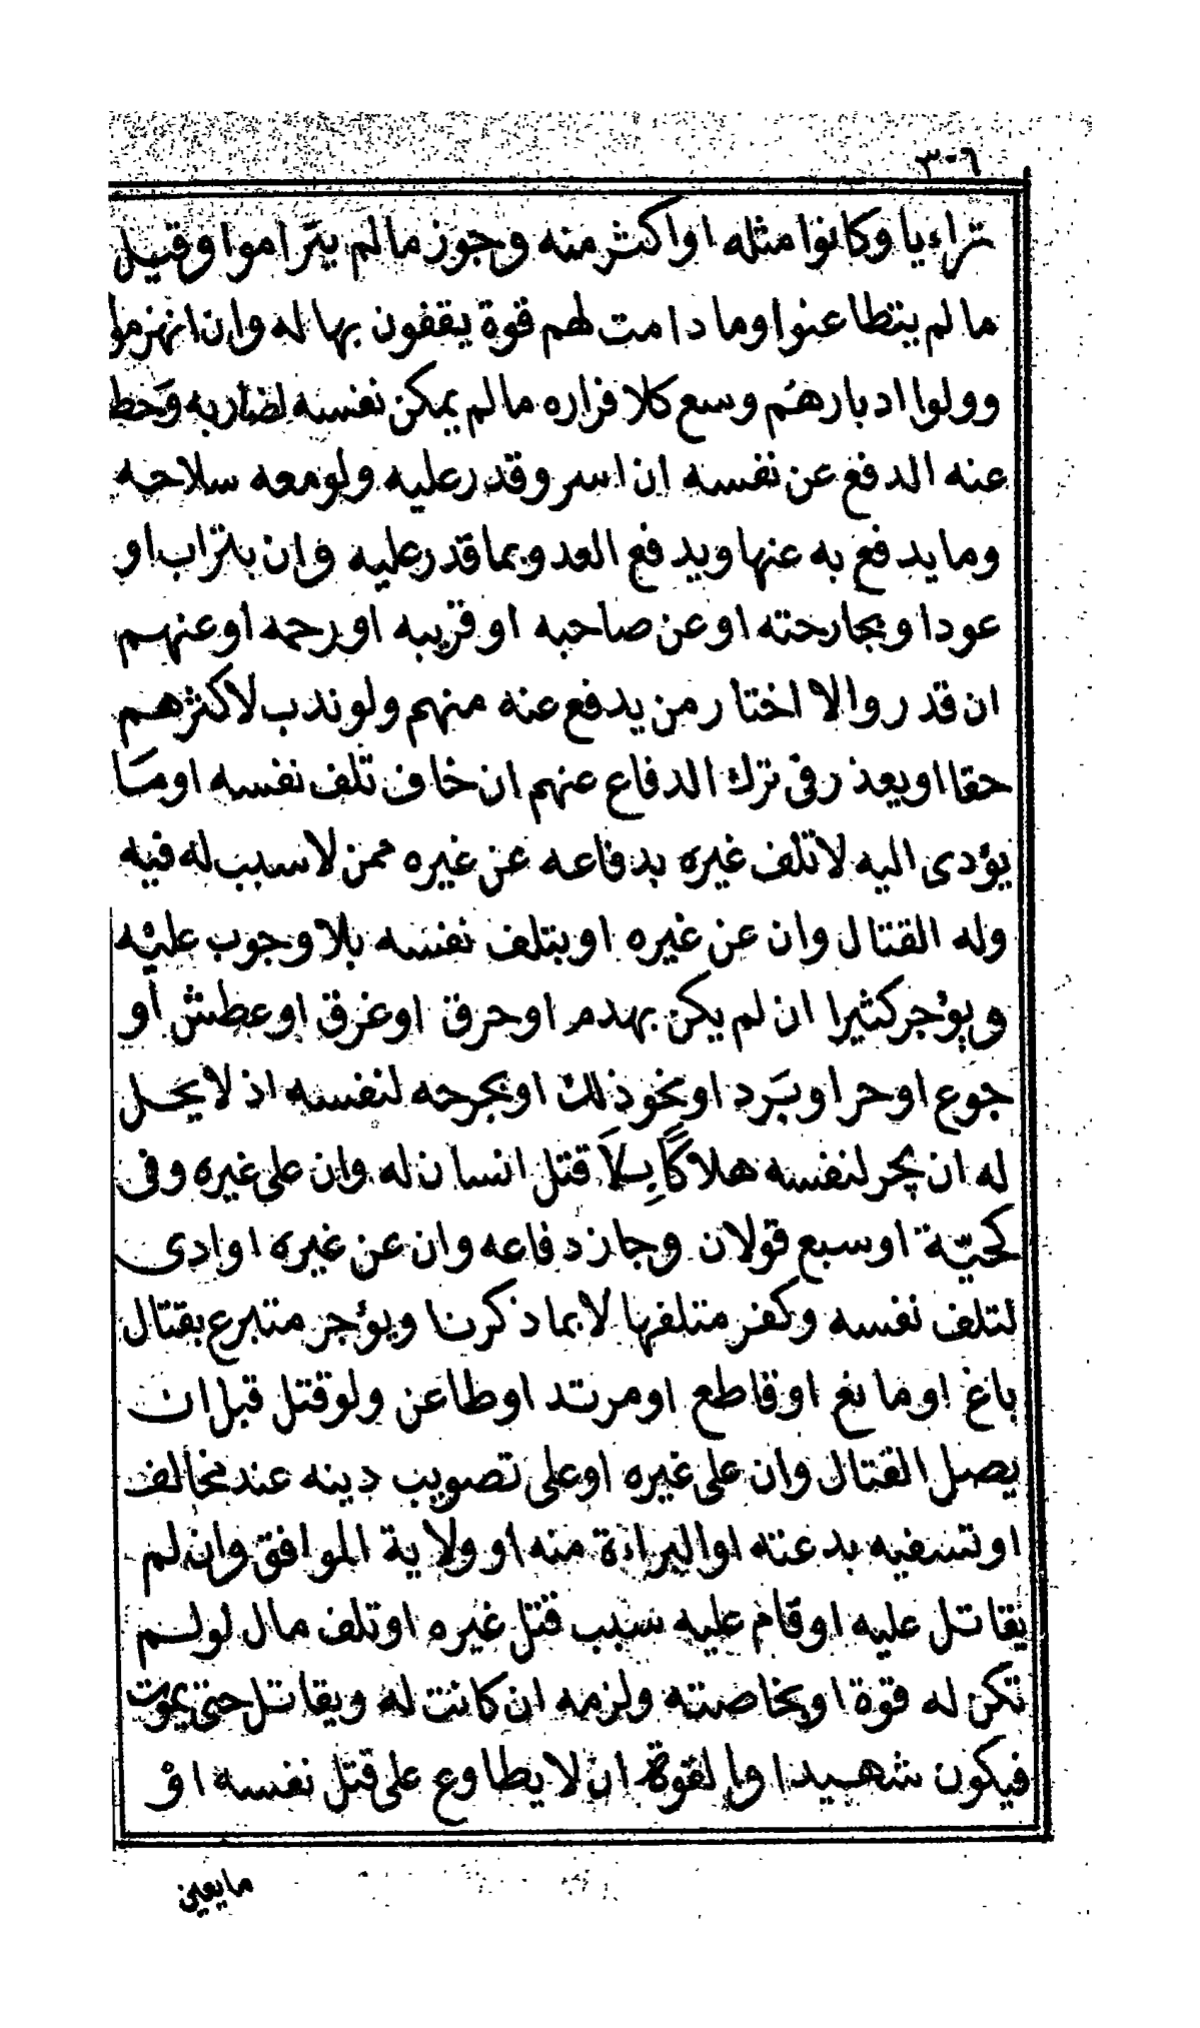 ٣٠٦
تراءيا وكانوا مثله او اكثر منه وجوز ما لم يتراموا وقيل
ما لم يتطاعنوا وما دامت لهم قوة يقفون بها له وان انهزموا
وولوا ادبارهم وسع كلا فراره ما لم يمكن نفسه لضاربه وحط
عنه الدفع عن نفسه ان اسر وقدر عليه ولو معه سلاحه
وما يدفع به عنها ويدفع العدو بما قدر عليه وان بتراب او
عود او بجارحته او عن صاحبه او قريبه او رحمه او عنهم
ان قدر والا اختار من يدفع عنه منهم ولو ندب لاكثرهم
حقا او يعذر في ترك الدفاع عنهم ان خاف تلف نفسه او ما
يؤدى اليه لا تلف غيره بدفاعه عن غيره ممن لا سبب له فيه
وله القتال وان عن غيره او بتلف نفسه بلا وجوب عليه
ويؤجر كثيرا ان لم يكن بهدم او حرق او غرق او عطش او
جوع او حر او برد او نحو ذلك او بجرحه لنفسه اذ لا يحل
له ان يجر لنفسه هلاكا بلا قتل انسان له وان على غيره وفى
كحية او سبع قولان وجاز دفاعه وان عن غيره او ادى
لتلف نفسه وكفر متلفها لا بما ذكرنا ويؤجر متبرع بقتال
باغ او مانع او قاطع او مرتد او طاعن ولو قتل قبل ان
يصل القتال وان على غيره او على تصويب دينه عند مخالف
او تسفيه بدعته او البراءة منه او ولاية الموافق وان لم
يقاتل عليه او قام عليه سبب قتل غيره او تلف مال لو لم
تكن له قوة او بخاصته ولزمه ان كانت له ويقاتل حتى يموت
فيكون شهيدا وا لقوة ان لا يطاوع على قتل نفسه او
ما يعين